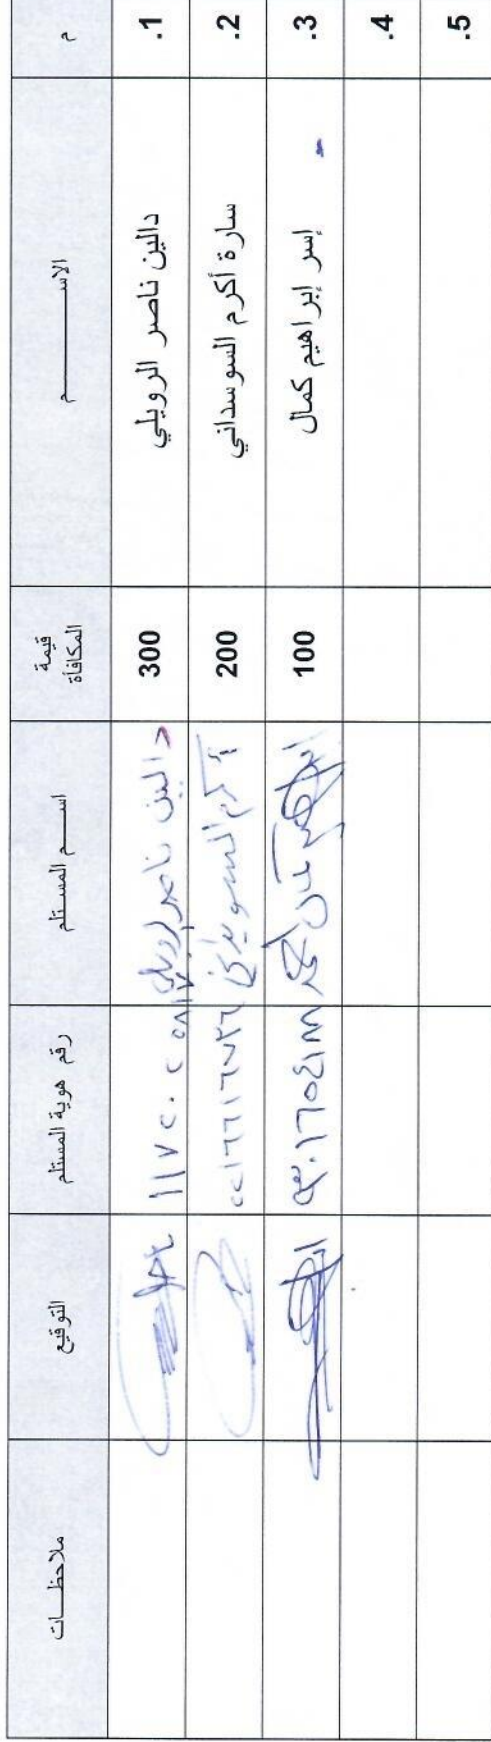 م الاســـــــــم قيمة المكافأة اســم المستلم رقم هوية المستلم التوقيع ملاحظــات
1. دالين ناصر الرويلي 300 دالين ناصر الرويلي
2. سارة أكرم السوسداني 200 أكرم
3. إسر إبراهيم كمال 100 ابراهيم كمال محمد
4.
5.